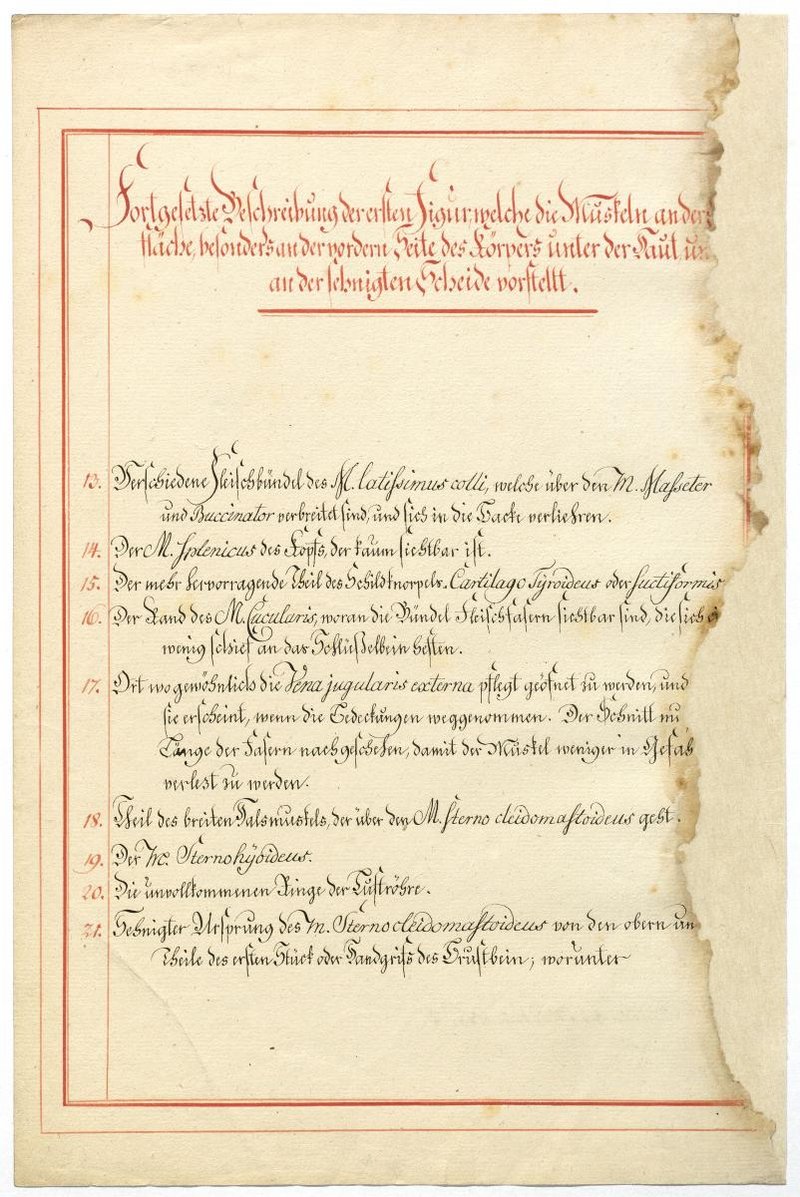 Fortgesetzte Beschreibung der ersten Figur, welche die Muskeln an der
fläche, besonders an der vordern Seite des Körpers unter der Haut, un
an der sehnigten Scheide vorstellt.
13. Verschiedene Fleischbündel des M. latissimus colli, welche über den M. Masseter
und Buccinator verbreitet sind, und sich in die Backe verliehren.
14. Der M. Splenicus des Kopfs, der kaum sichtbar ist.
15. Der mehr hervorragende Theil des Schildknorpels. Cartilago Tyroideus oder suctiformis
16. Der Rand des M. Cucularis, woran die Bündel Fleischfasern sichtbar sind, die sich
wenig schief an das Schlüßelbein heften.
17. Ort wo gewöhnlich die Vena jugularis externa pflegt geöfnet zu werden, und
sie erscheint, wenn die Bedeckungen weggenommen. Der Schnitt mu
Länge der Fasern nach geschehen, damit der Muskel weniger in Gefah
verlezt zu werden.
18. Theil des breiten Halsmuskels, der über den M. sterno cleidomastoideus geht.
19. Der M. Sternohyöideus.
20. Die unvollkommenen Ringe der Luftröhre.
21. Sehnigter Ursprung des M. Sterno cleidomastoideus von den obern un
Theile des ersten Stück oder Handgrifs des Brustbein; worunter